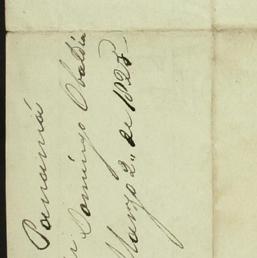 Panamá
Domingo Obaldia
Marzo 2,, de 1825